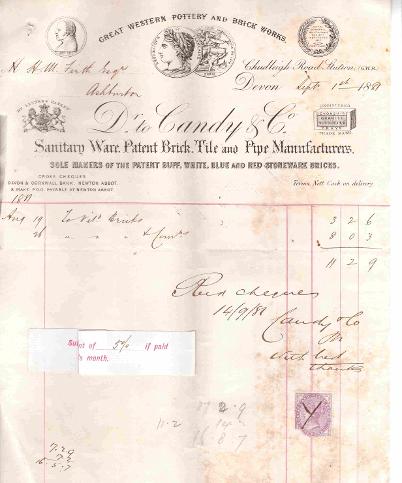 GREAT WESTERN POTTERY AND BRICK WORKS.
Chudleigh Road Station, G.W.R.
H. H. M. Firth Esqr
Ashburton
Devon Sept. 1st 1881
Dr. to Candy & Co
Sanitary Ware, Patent Brick, Tile and Pipe Manufacturers.
SOLE MAKERS OF THE PATENT BUFF, WHITE, BLUE AND RED STONEWARE BRICKS.
CROSS CHEQUES
DEVON & CORNWALL BANK, NEWTON ABBOT.
& MAKE P.O.O. PAYABLE AT NEWTON ABBOT.
Terms, Nett Cash on delivery
1881
Aug 19 To Bricks 3 2 6
" " & 8 0 3
11 2 9
Recd cheque
14/9/81
Candy & Co
with
thanks
of 5% if paid
month.
2.9
11.2 14
16 8 7
7.29
16.5.7